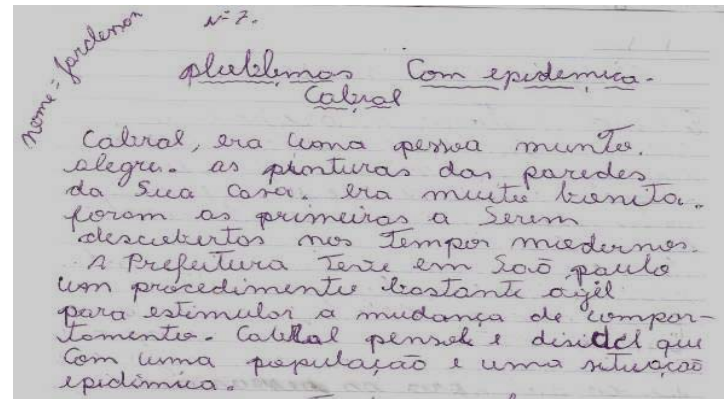 nome = Jardesson
Nº 7.
plublemas Com epidemica.
Cabral
Cabral, era uma pessoa munto.
alegre. as pinturas das paredes
da Sua casa. era muito bonita.
foram as primeiras a Serem
descubertos nos tempos modernos.
A Prefeitura Teve em São paulo
um procedimento bastante agil
para estimular a mudança de compor-
tamento. Cabral pensol e disidel que
Com uma população e uma situação
epidimica.